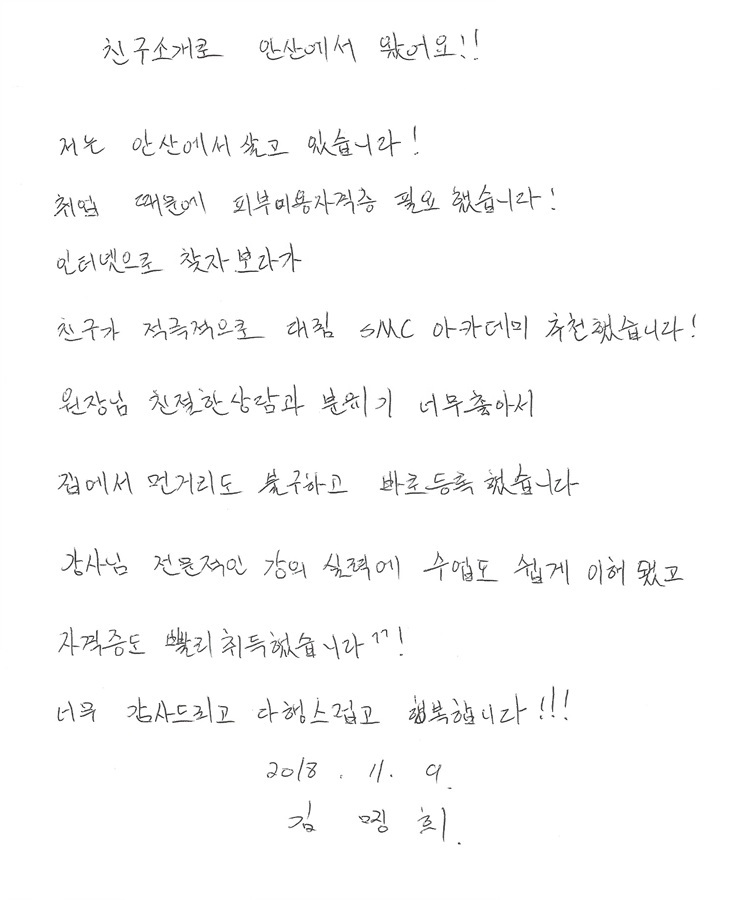 친구소개로 안산에서 왔어요!!
저는 안산에서 살고 있습니다!
취업 때문에 피부미용자격증 필요했습니다!
인터넷으로 찾자보라가
친구가 적극적으로 대림 SMC 아카데미 추천했습니다!
원장님 친절한상담과 분위기 너무좋아서
집에서 먼거리도 불구하고 바로등록했습니다
강사님 전문적인 강의 실력에 수업도 쉽게 이해 됐고
자격증도 빨리취득했습니다^^!
너무 감사드리고 다행스럽고 행복합니다!!!
2018. 11. 9.
김 명 희.